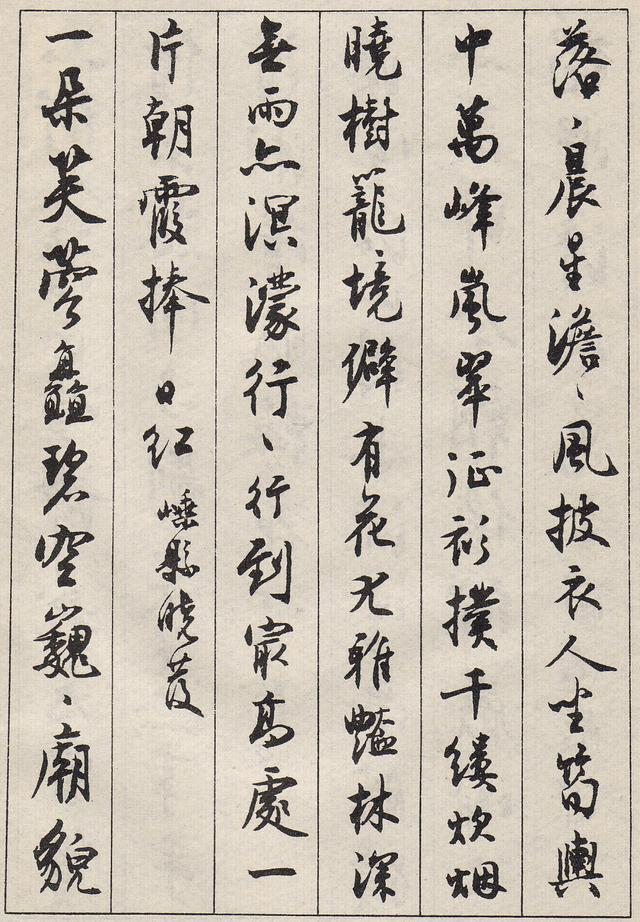 落、晨星澹、風披衣人坐筍輿
中萬峰嵐翠征衫撲千縷炊烟
曉樹籠境僻有花尤雅豔林深
無雨亦溟濛行、行到最高處一
片朝霞捧日紅 嵊縣曉發
一朵芙蓉矗碧空巍、廟貌